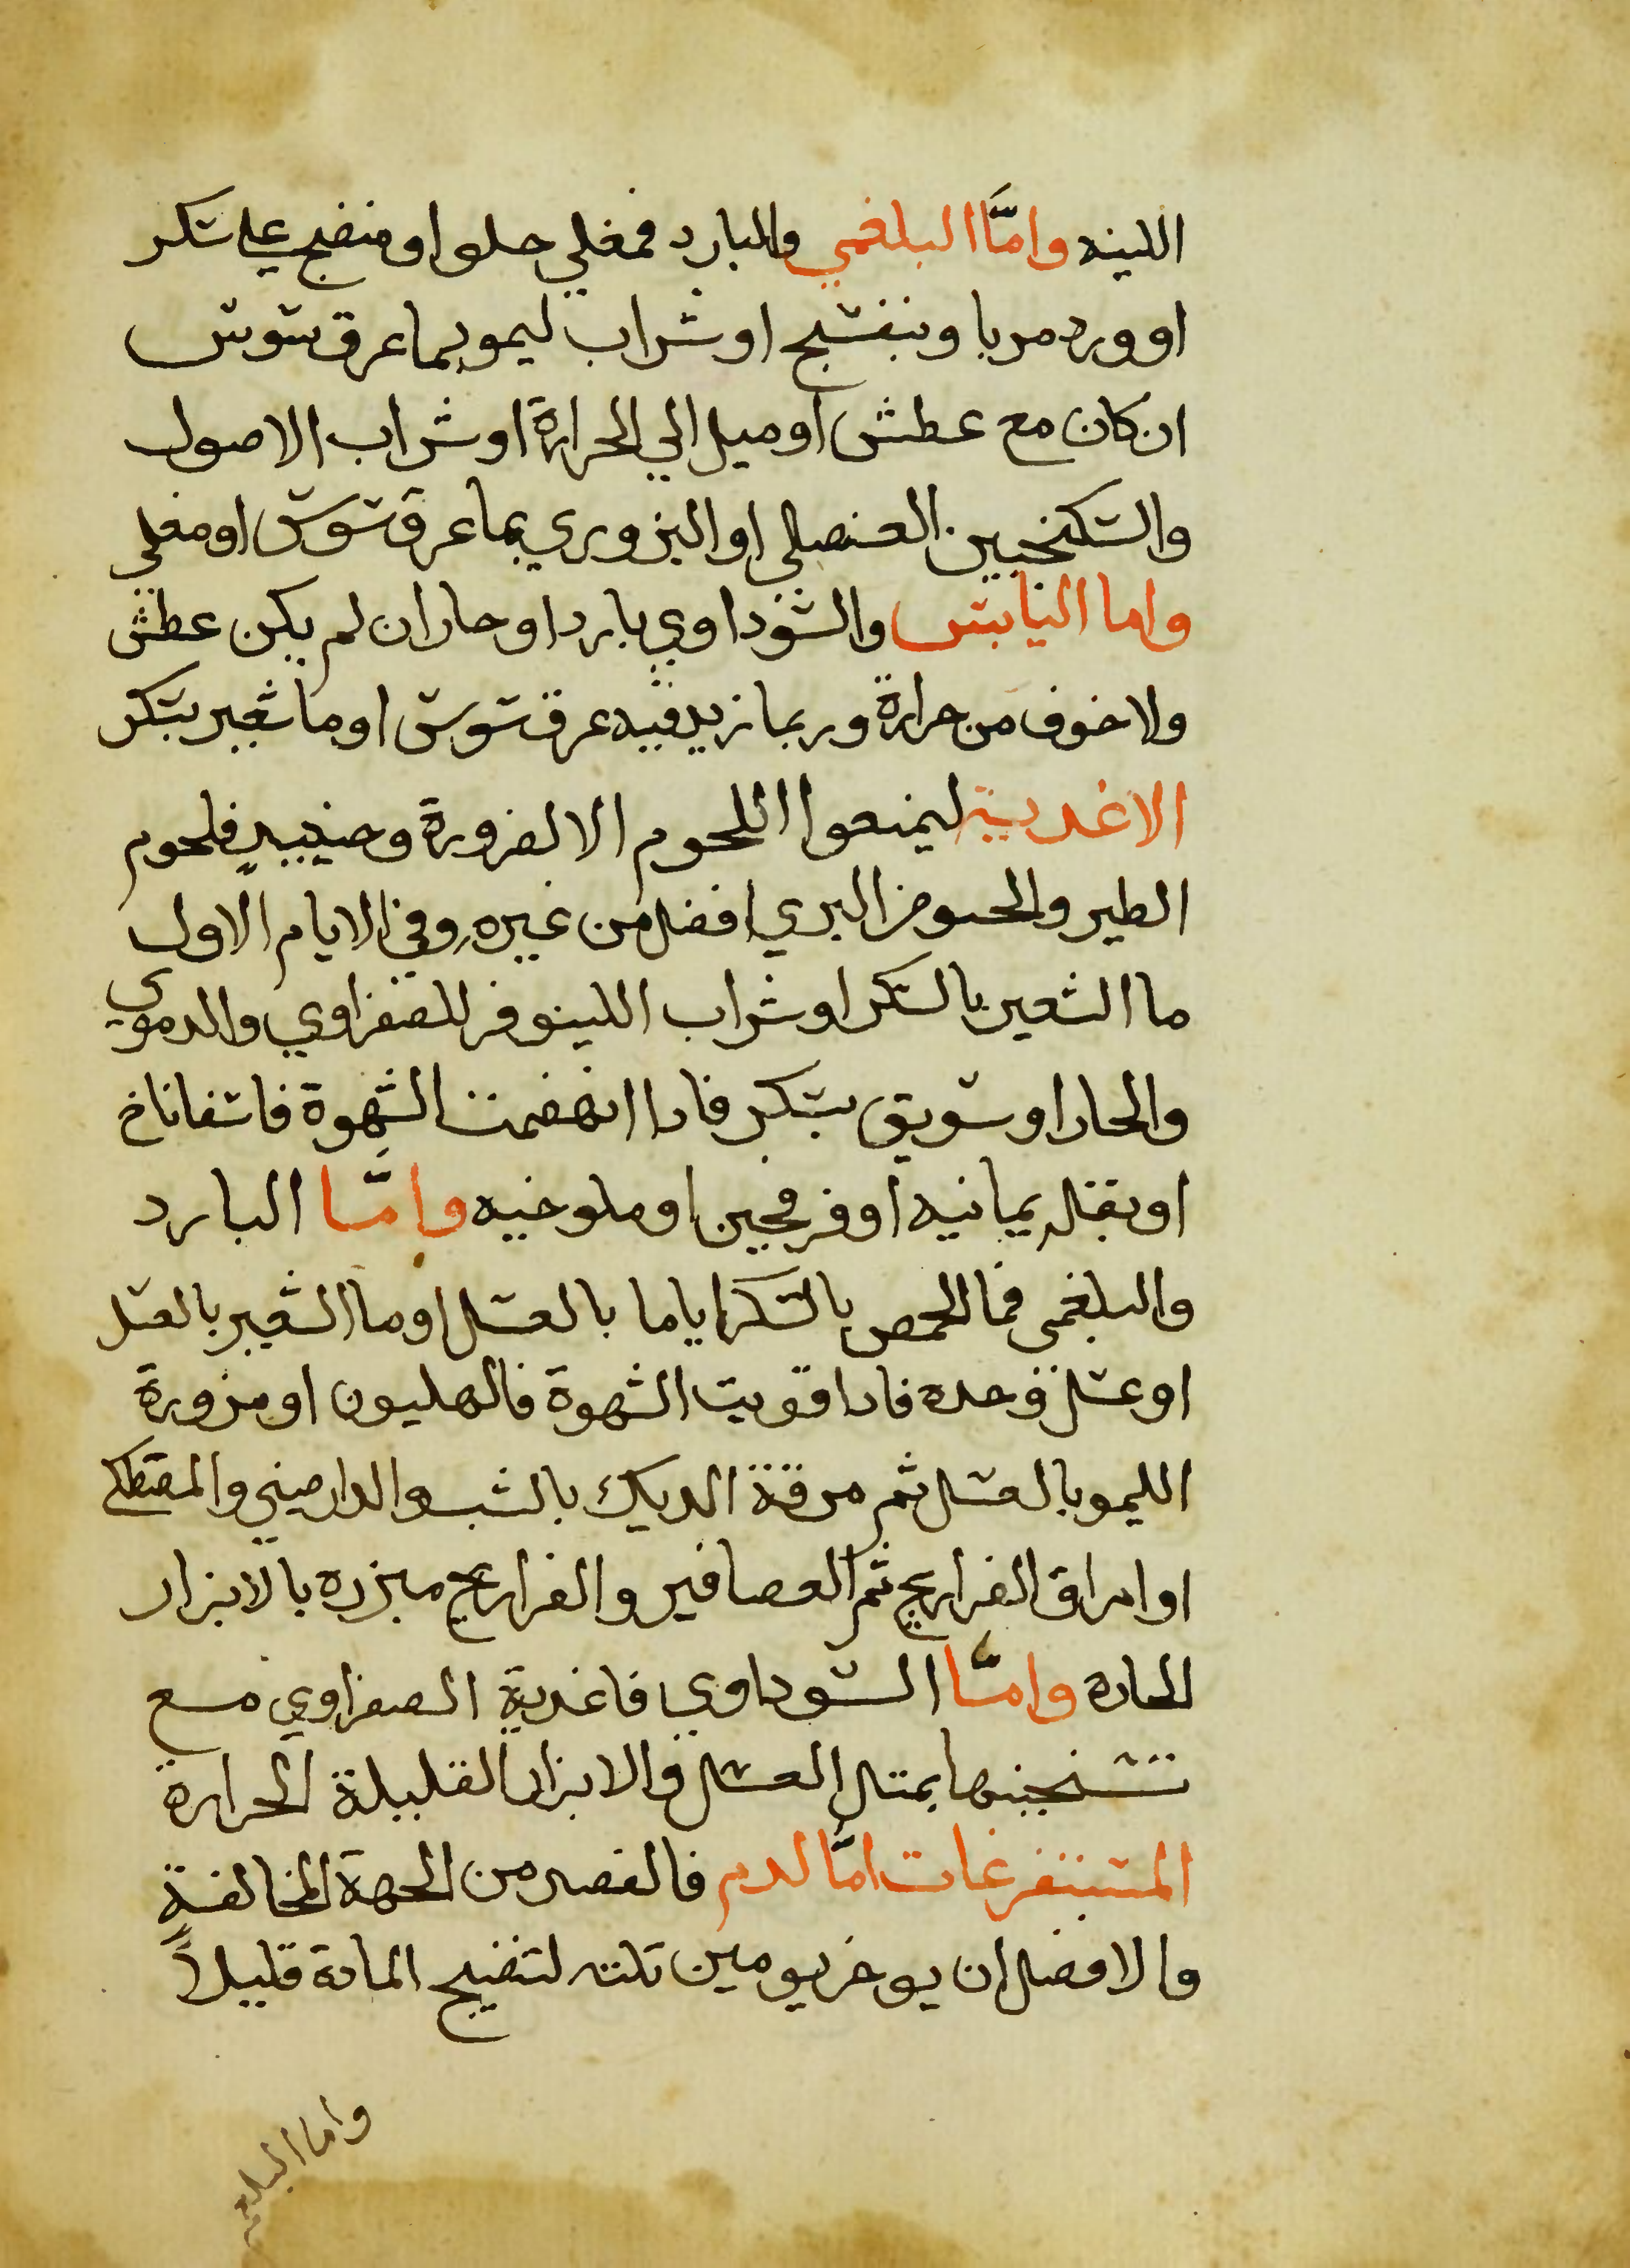 اللينه وامَّا البلغمي والبارد فمغلي حلو او منضج علي سكر
او ورد مربا وبنفسج او شراب ليمو بما عرق سوس
ان كان مع عطش او ميل الي الحرارة او شراب الاصول
والسكنجبين العنصلي او البزوري بما عرق سوس او مغلي
واما اليابس والسوداوي باردا و حار ان لم يكن عطش
ولا خوف من حرارة وربما زيد فيه عرق سوس او ما شعير بسكر
الاغدية ليمنعوا اللحوم الا لضرورة وحينييدٍ فلحوم
الطير والحوض البري افضل من غيره وفي الايام الاول
ما الشعير بالسكر او شراب اللينوفر للصفراوي والدموي
والحار او سويق بسكر فادا انهضمت الشهوة فاسفاناخ
او بقله يمانيه او فرفجين او ملوخيه وامَّا البارد
والبلغمي فما الحمص بالسكر اياما بالعسل او ما الشعير بالعسل
او عسل وحده فادا قويت الشهوة فالهليون او مزورة
الليمو بالعسل ثم مرقة الديك بالشبت والدارصيني والمصطكي
او امراق الفراريج ثم العصافير والفراريج مبزره بالابزار
الحاره وامَّا السوداوي فاغدية الصفراوي مع
تسخينها بمتل العسل والابزار القليلة الحرارة
المستفرغات امَّا الدم فالفصد من الجهة المخالفة
والافضل ان يوخر يومين تلته لتنضيج المادة قليلاً
واما البلغمي